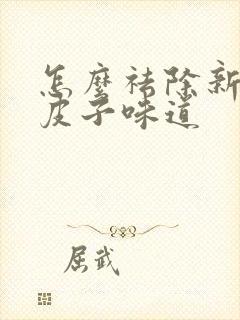 怎麼祛除新
皮子味道
屈武